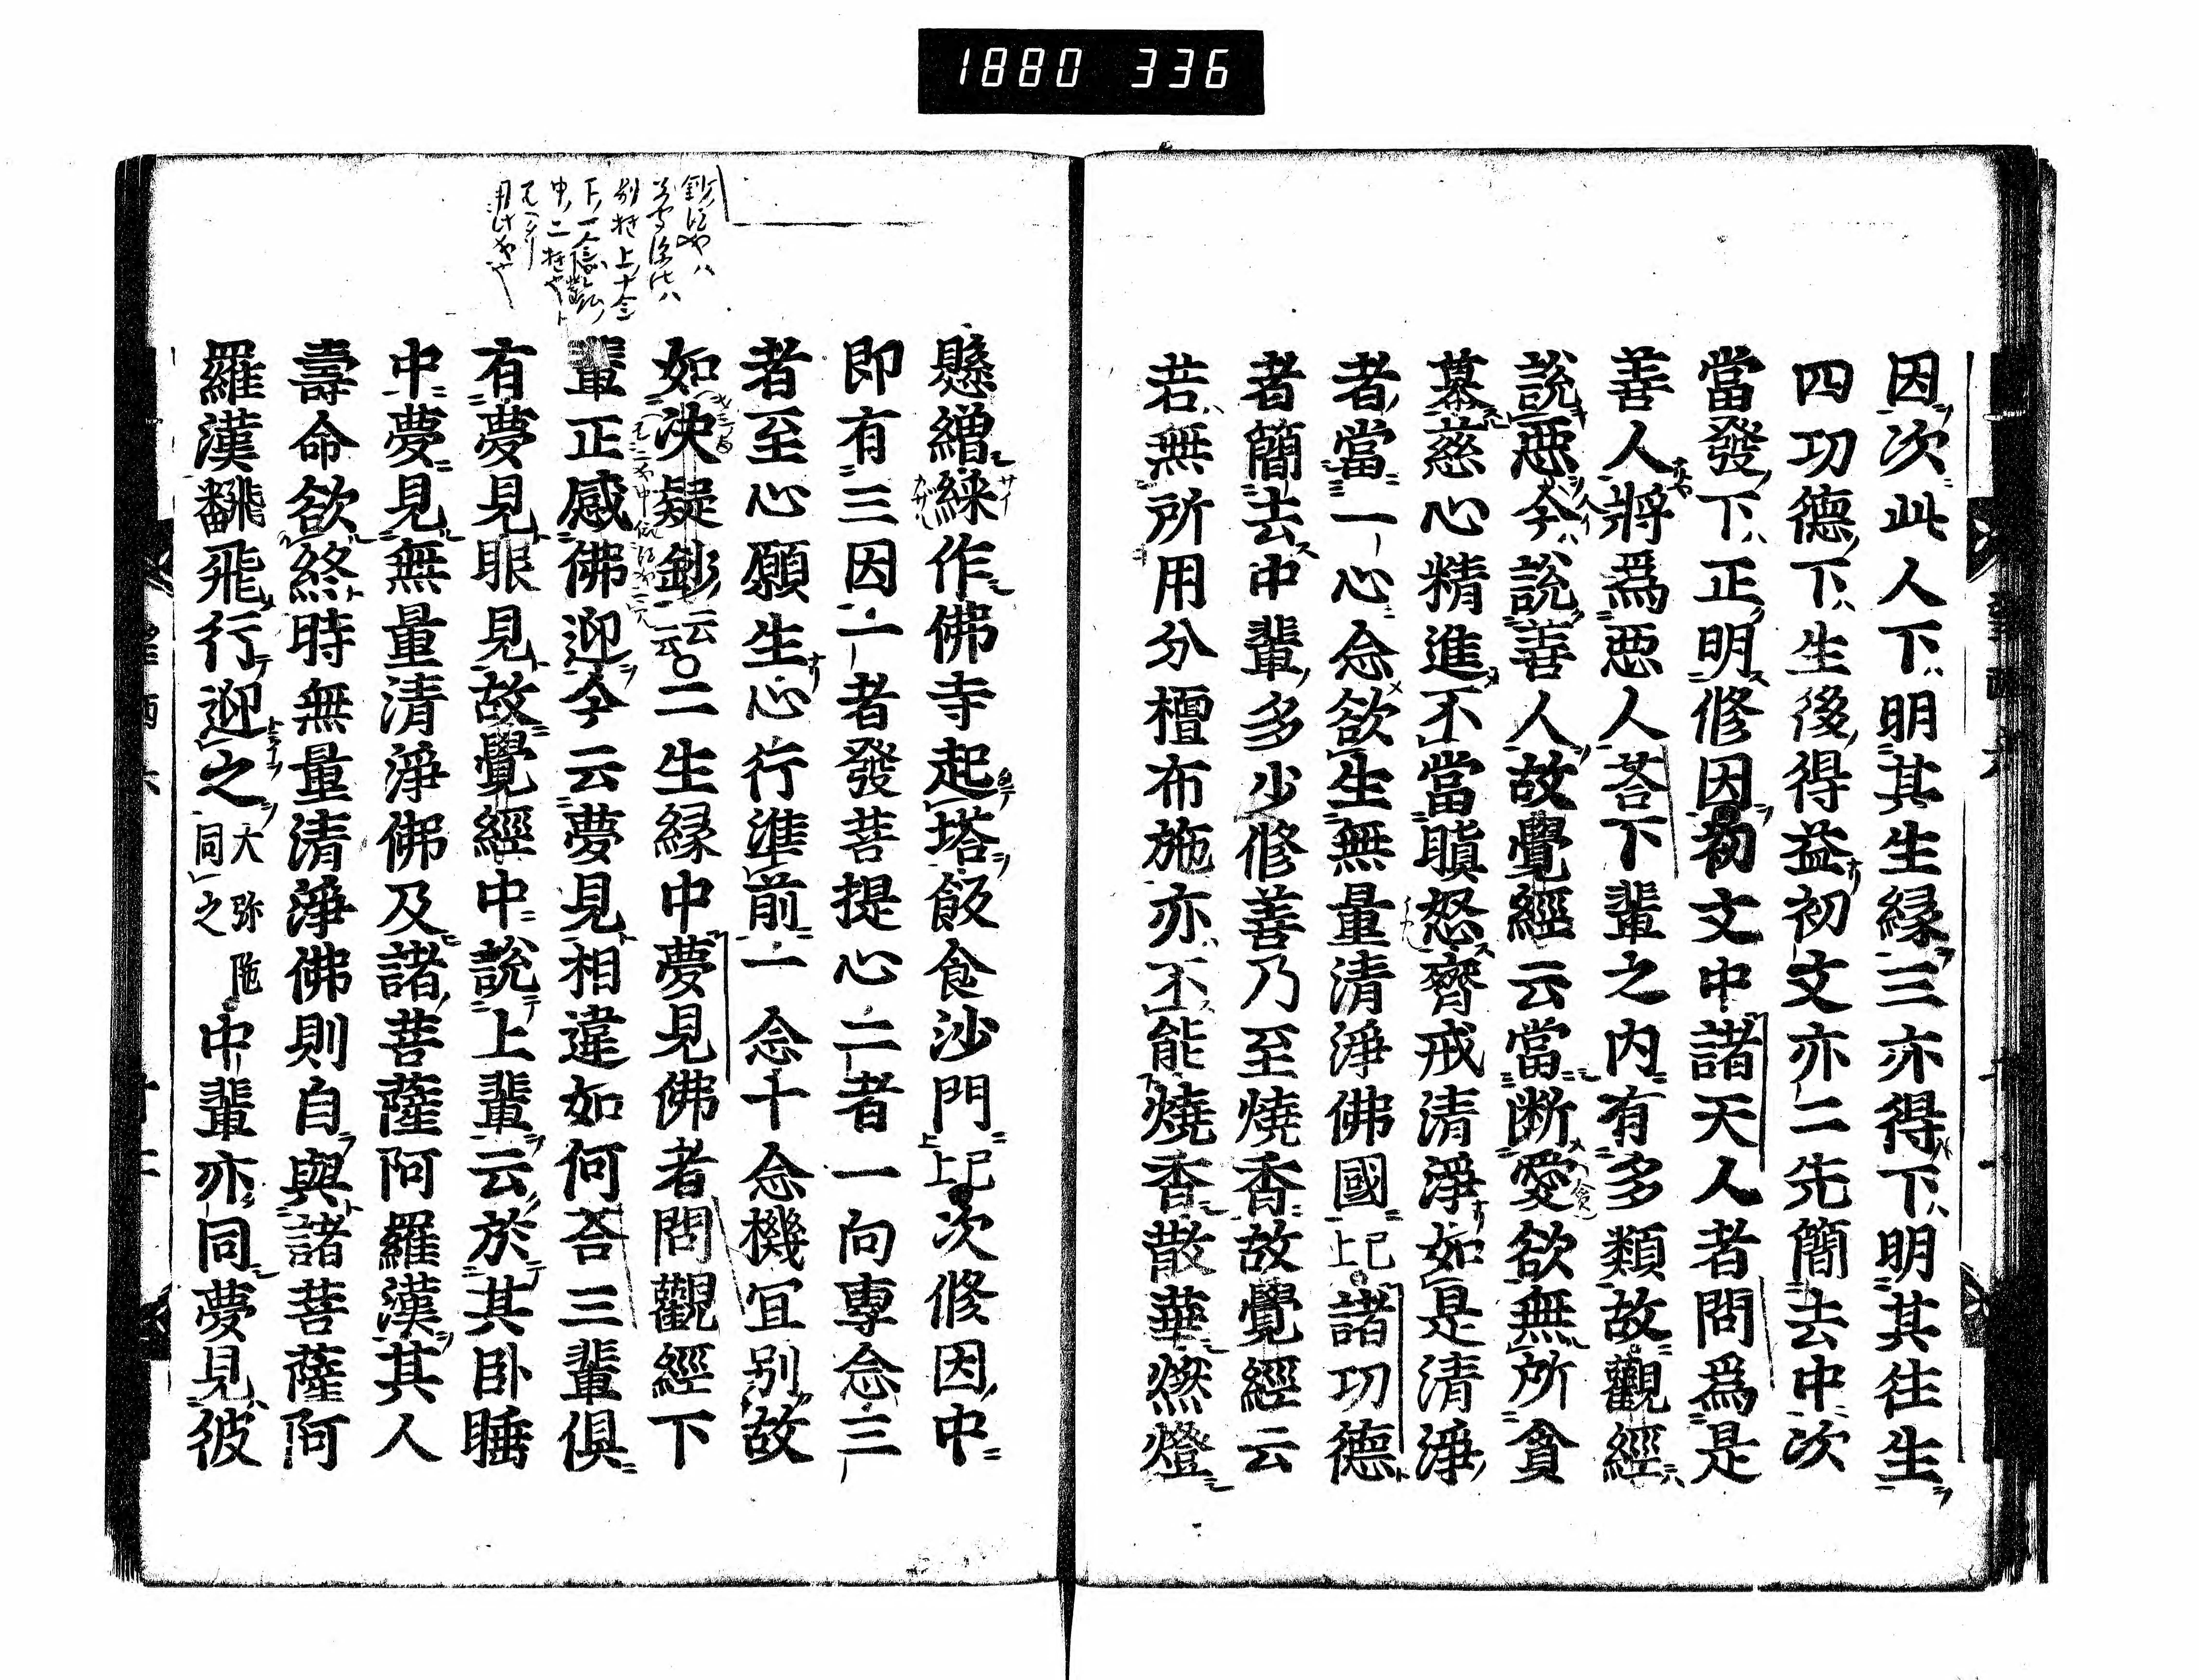 1880 336
因次此人下明其生縁三亦得下明其徃生
四功德下生後得益初文亦二先簡去中次
當發下正明修因初文中諸天人者問爲是
善人將爲惡人荅下輩之内有多類故觀經
說惡今說善人故覺經云當断愛欲無所貪
慕慈心精進不當瞋怒齊戒清淨如是清淨
者當一心念欲生無量清淨佛國已上諸功德
者簡去中輩多少修善乃至燒香故覺經云
若無所用分檀布施亦不能燒香散華燃燈
懸繒綵作佛寺起塔飯食沙門已上次修因中
即有三因一者發菩提心二者一向專念三
者至心願生心行準前一念十念機宜别故
如決疑鈔云云〇二生縁中夢見佛者問觀經下
輩正感佛迎今云夢見相違如何荅三輩俱
有夢見眼見故覺經中說上輩云於其卧睡
中夢見無量清淨佛及諸菩薩阿羅漢其人
壽命欲終時無量清淨佛則自與諸菩薩阿
羅漢飜飛行迎之大弥陁同之中輩亦同夢見彼